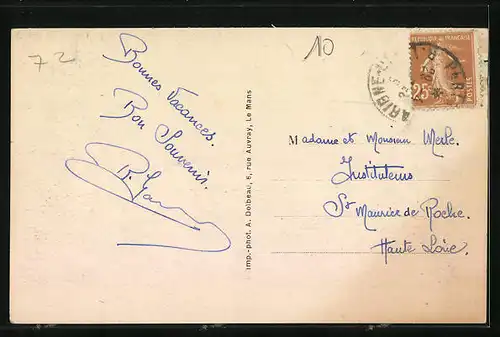 72
10
Bonnes Vacances.
Bon Souvenir.
Imp.-phot. A. Dolbeau, 5, rue Auvray, Le Mans
REPUBLIQUE FRANÇAISE
25
POSTES
Madame et Monsieur Merle.
Instituteurs
St Maurice de Roche.
Haute Loire.